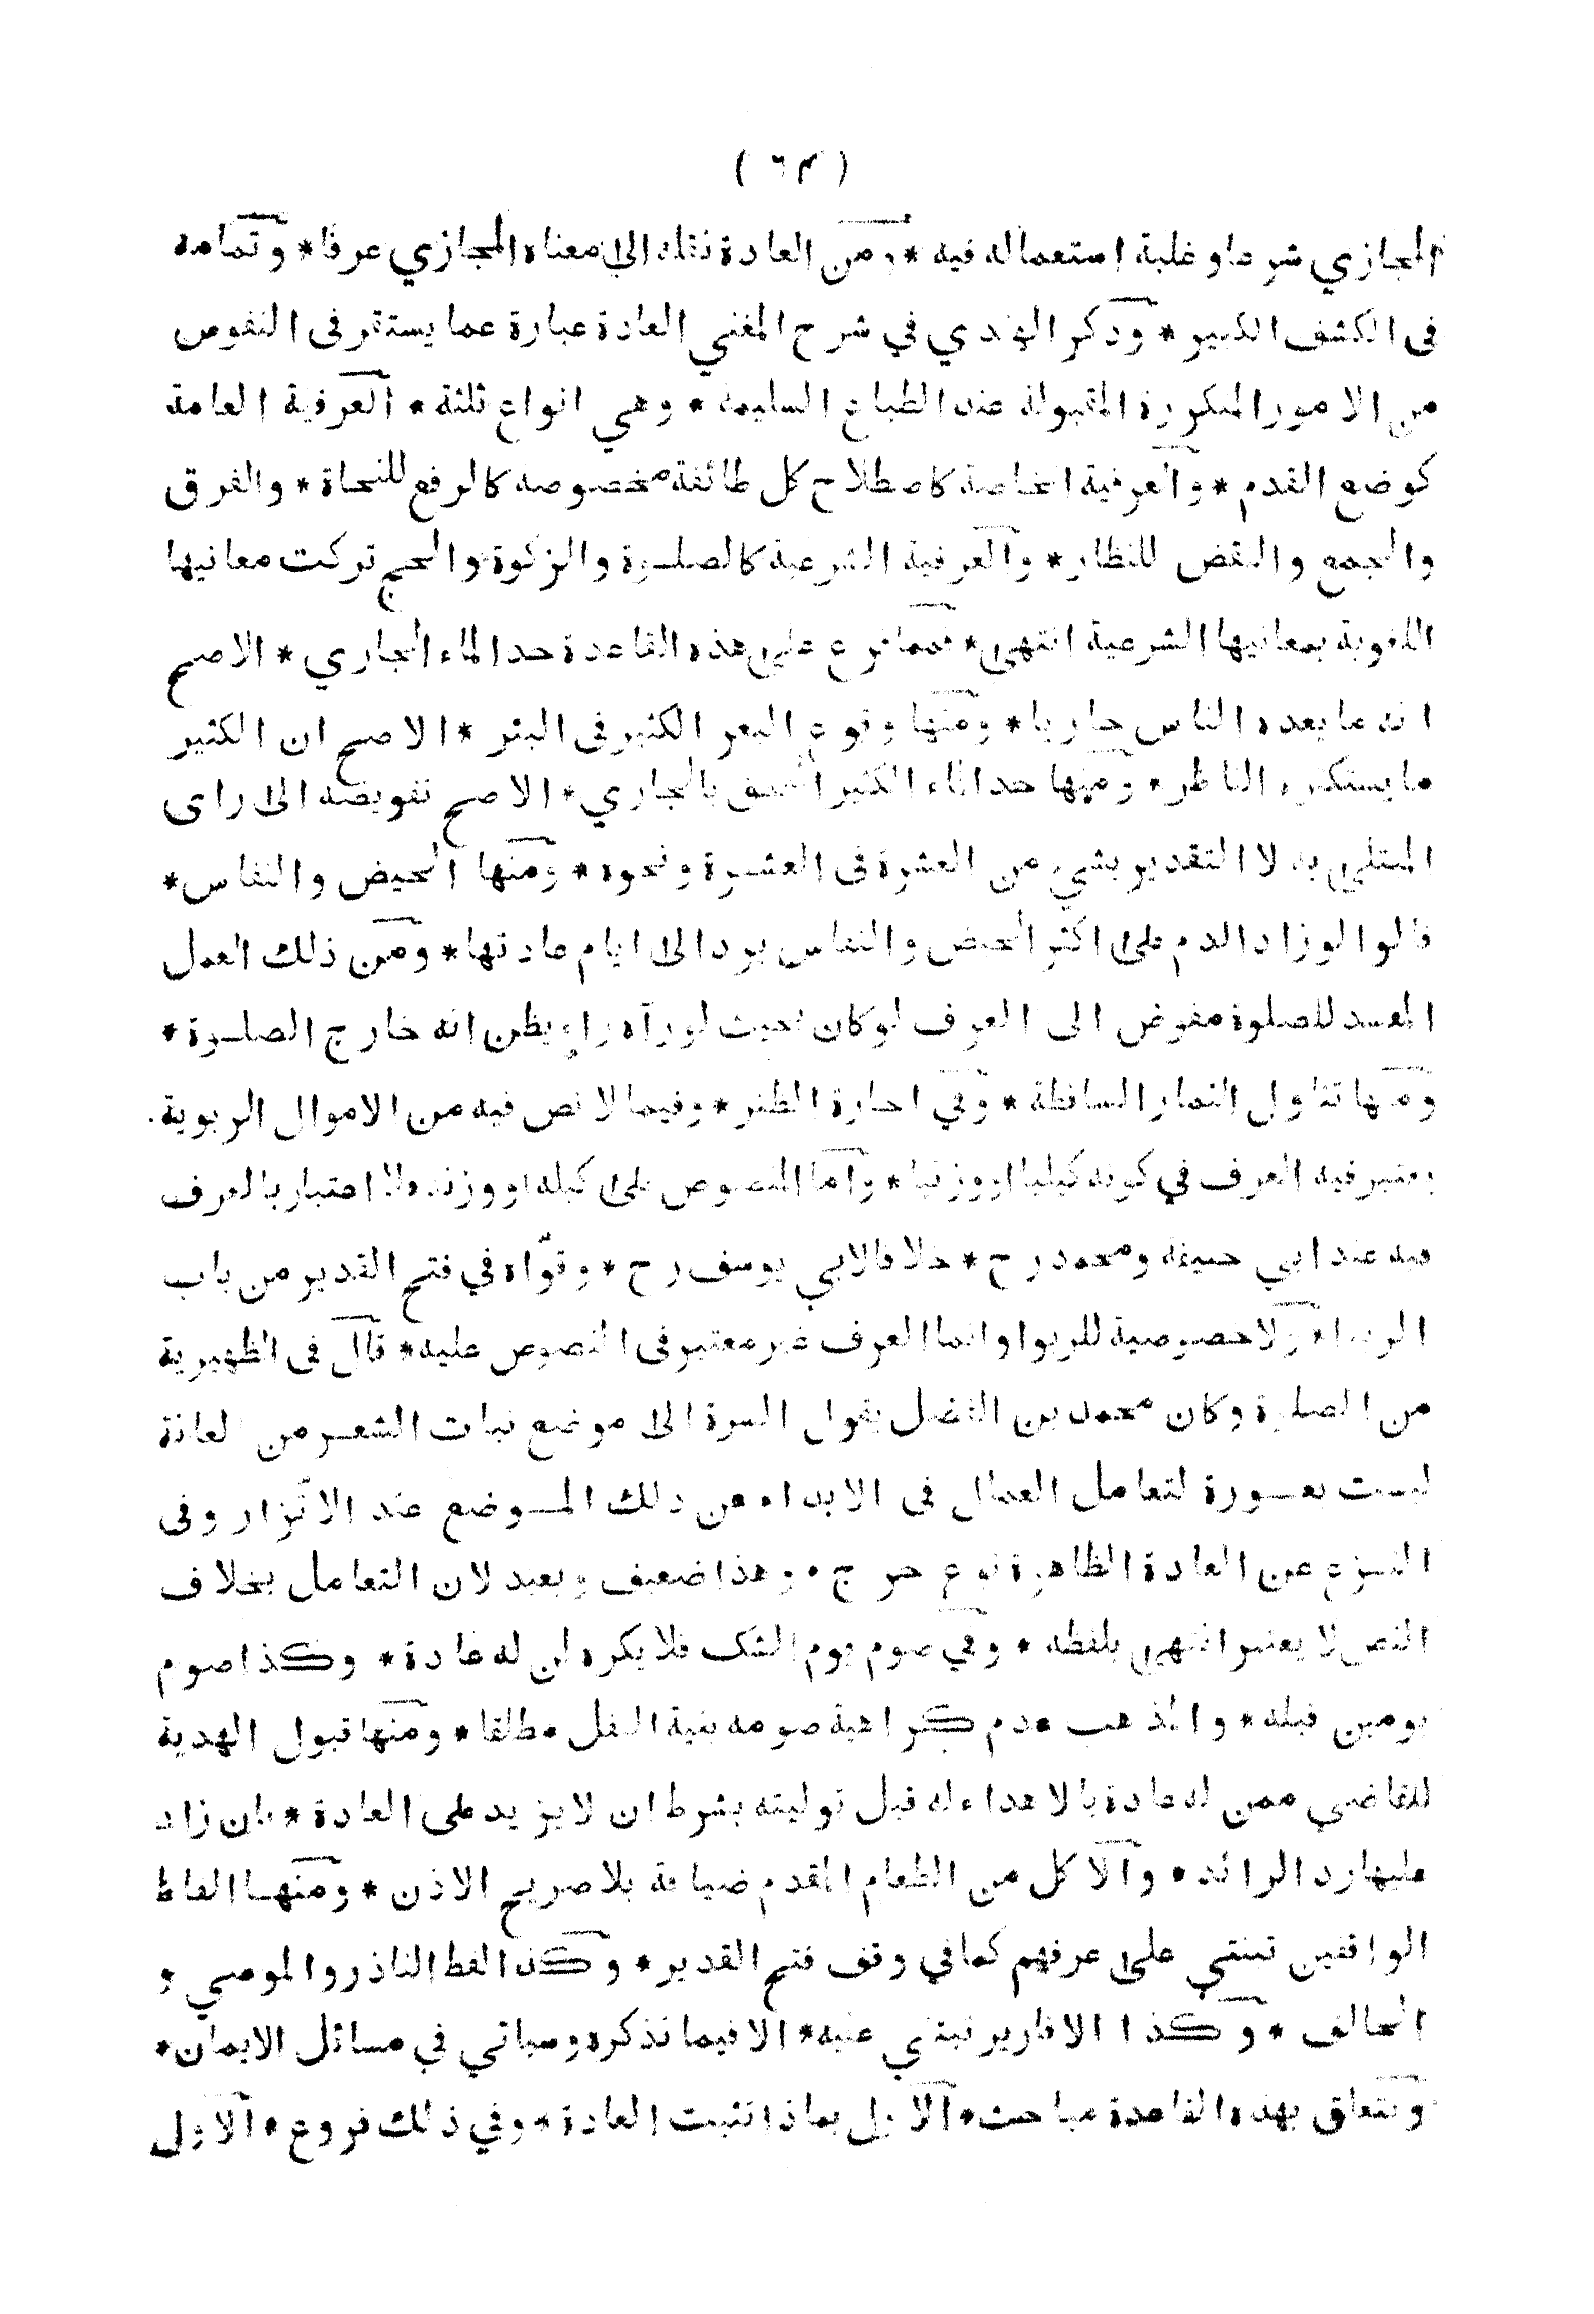 ( ٦٣ )
المجازي شرعا وغلبة استعماله فيه * ومن العادة نقله الى معناه المجازي عرفا * وتمامه
فى الكشف الكبير * وذكر الهندي في شرح المغني العادة عبارة عما يستقر فى النفوس
من الامور المتكررة المقبولة عند الطباع السليمة * وهي انواع ثلثة * العرفية العامة
كوضع القدم * والعرفية الخاصة كاصطلاح كل طائفة مخصوصة كالرفع للنحاة * والفرق
والجمع والنقض للنظار * والعرفية الشرعية كالصلوة والزكوة والحج تركت معانيها
اللغوية بمعانيها الشرعية انتهى * فمما فرع على هذه القاعدة حد الماء الجاري * الاصح
انه ما يعده الناس جاريا * ومنها وقوع البعر الكثير فى البئر * الاصح ان الكثير
ما يستكثره الناظر * ومنها حد الماء الكثير الملحق بالجاري * الاصح تفويضه الى راى
المبتلى به لا التقدير بشيء من العشرة فى العشرة ونحوه * ومنها الحيض والنفاس *
قالوا لو زاد الدم على اكثر الحيض والنفاس يرد الى ايام عادتها * ومن ذلك العمل
المفسد للصلوة مفوض الى العرف لو كان بحيث لو رآه راءٍ يظن انه خارج الصلوة *
ومنها تناول الثمار الساقطة * وفي اجارة الظئر * وفيما لا نص فيه من الاموال الربوية
يعتبر فيه العرف في كونه كيليا او وزنيا * واما المنصوص على كيله او وزنه فلا اعتبار بالعرف
فيه عند ابي حنيفة ومحمد رح * خلافا لابي يوسف رح * وقوّاه في فتح القدير من باب
الربوا * ولا خصوصية للربوا وانما العرف غير معتبر فى المنصوص عليه * قال فى الظهيرية
من الصلوة وكان محمد بن الفضل يقول السرة الى موضع نبات الشعر من العانة
ليست بعورة لتعامل العمال فى الابداء عن ذلك الموضع عند الاتّزار وفى
النزع عن العادة الظاهرة نوع حرج * وهذا ضعيف وبعيد لان التعامل بخلاف
النص لا يعتبر انتهى بلفظه * وفي صوم يوم الشك فلا يكره لمن له عادة * وكذا صوم
يومين قبله * والمذهب عدم كراهية صومه بنية النفل مطلقا * ومنها قبول الهدية
للقاضي ممن له عادة بالاهداء له قبل توليته بشرط ان لا يزيد على العادة * فان زاد
عليها رد الزائد * والاكل من الطعام المقدم ضيافة بلا صريح الاذن * ومنها الفاظ
الواقفين تبتني على عرفهم كما في وقف فتح القدير * وكذا لفظ الناذر والموصي و
الحالف * وكذا الاقارير تبتني عليه * الا فيما نذكره وسياتي في مسائل الايمان *
وتتعلق بهذه القاعدة مباحث * الاول بماذا تثبت العادة * وفي ذلك فروع * الاول